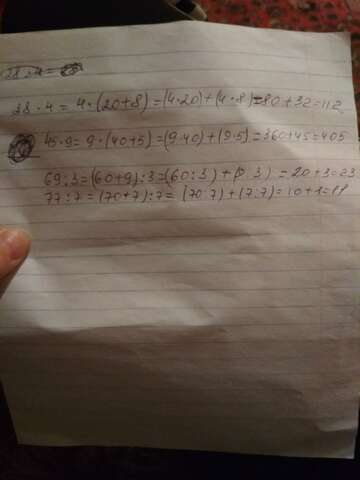 28 · 4 =
28 · 4 = 4 · (20+8) = (4·20) + (4·8) = 80 + 32 = 112
45·9 = 9·(40+5) = (9·40) + (9·5) = 360+45 = 405
69:3 = (60+9):3 = (60:3) + (9:3) = 20+3 = 23
77:7 = (70+7):7 = (70:7) + (7:7) = 10+1 = 11